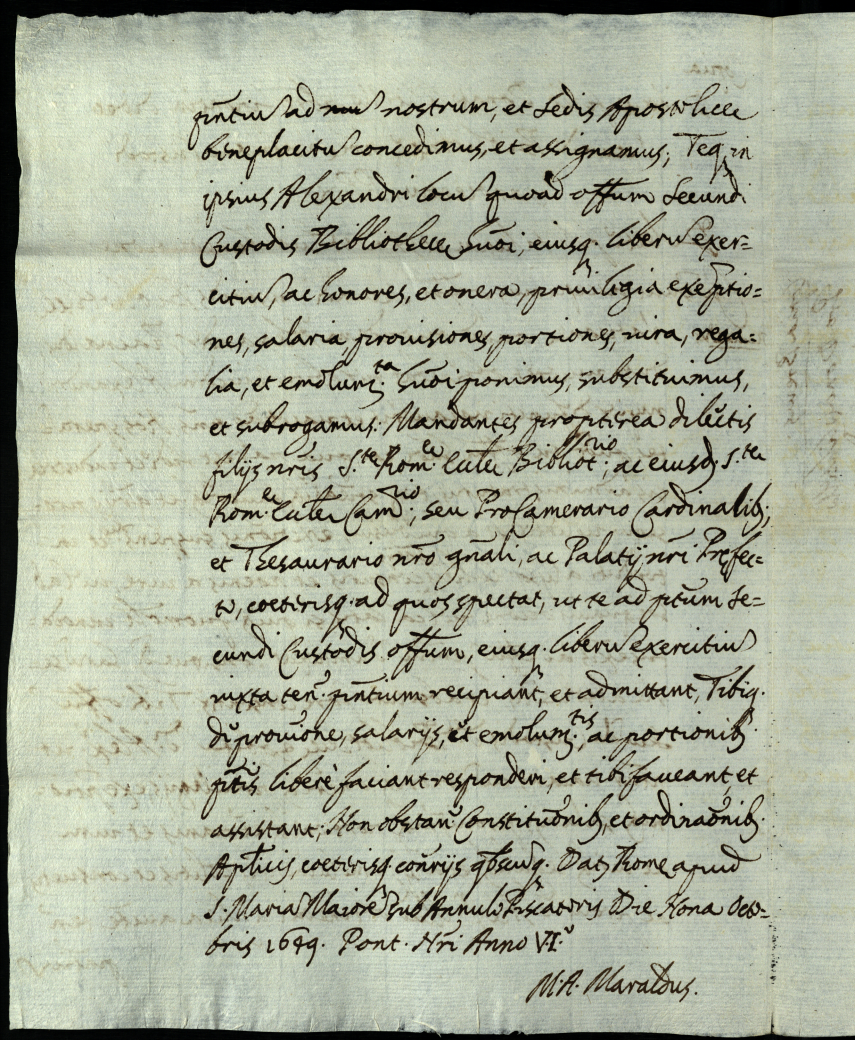 pñtiũ ad nostrum, et Sedis Apostolicæ
beneplacitũ concedimus, et assignamus; Teq. in
ipsius Alexandri locũ quoad offum secundi
Custodis Bibliothecæ hũoi, eiusq. liberũ exer=
citiũ, ac honores, et onera, privilegia exẽptio=
nes, salaria, provisiones, portiones, iura, rega=
lia, et emolum.ta hũoi ponimus, substituimus,
et subrogamus. Mandantes propterea dilectis
filijs nr̃is S.te Rom.e Bibliot.rio, ac eiusd. S.te
Rom.e Cam.rio, seu ProCamerario Cardinalib;
et Thesaurario nr̃o gñali, ac Palatij nr̃i Præfec=
to, coeterisq. ad quos spectat, ut te ad p̃tum Se=
cundi Custodis offum, eiusq. liberũ exercitiũ
iuxta ten. pñtium recipiant, et admittant, Tibiq.
de provione, salarijs, et emolum.tis, ac portionib.
p̃tis liberè faciant responderi, et tibi faveant, et
assistant; Non obstan. Constitũonib, et ordinaõnib.
Aplicis, coeterisq. coñrijs qbscuq. Dat. Romæ apud
S. Mariã Maiorẽ sub Annulo Piscatoris Die Nona Octo=
bris 1649. Pont. Nr̃i Anno VI.
M. A. Maraldus.